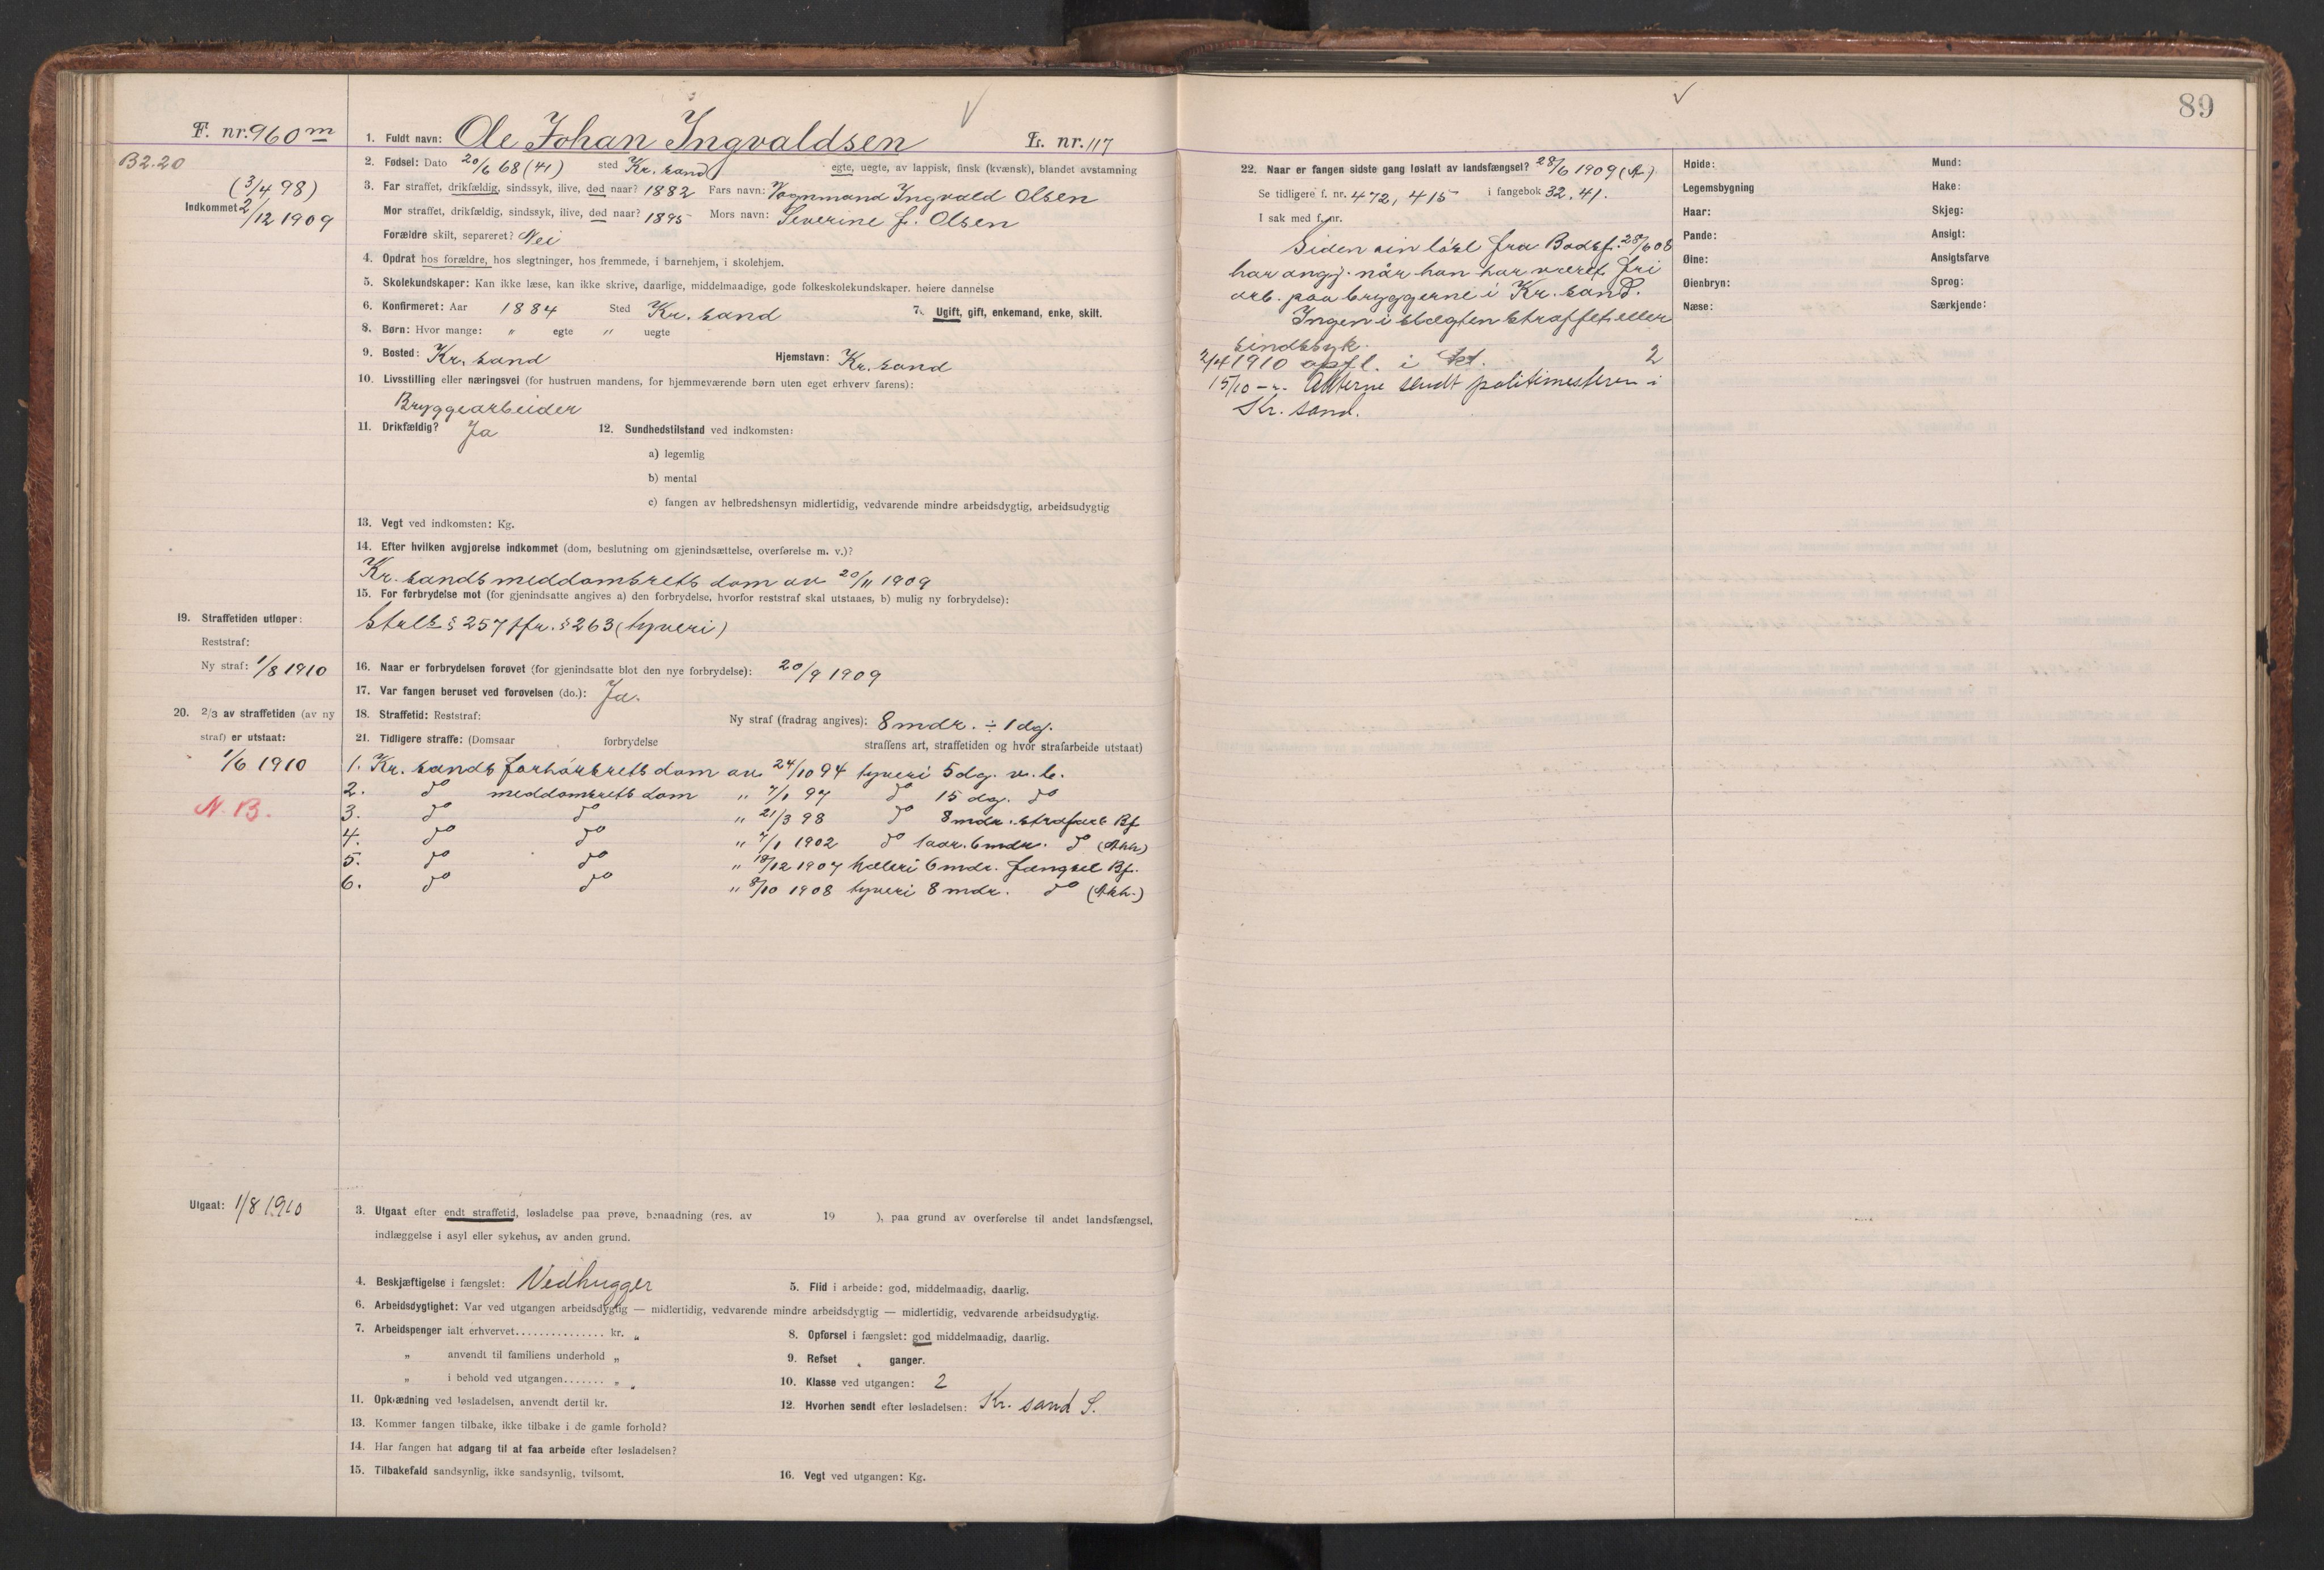 89
F. nr. 960 m
1. Fuldt navn: Ole Johan Ingvaldsen L. nr. 117
B2.20
2. Fødsel: Dato 20/6 68 (41) sted Kr.sand egte, uegte, av lappisk, finsk (kvænsk), blandet avstamning
(3/4 98)
3. Far straffet, drikfældig, sindssyk, ilive, død naar? 1882 Fars navn: Vognmand Ingvald Olsen
Indkommet 2/12 1909
Mor straffet, drikfældig, sindssyk, ilive, død naar? 1895 Mors navn: Severine f. Olsen
Forældre skilt, separeret? Nei
4. Opdrat hos forældre, hos slegtninger, hos fremmede, i barnehjem, i skolehjem.
5. Skolekundskaper: Kan ikke læse, kan ikke skrive, daarlige, middelmaadige, gode folkeskolekundskaper. høiere dannelse
6. Konfirmeret: Aar 1884 Sted Kr.sand 7. Ugift, gift, enkemand, enke, skilt.
8. Børn: Hvor mange: " egte " uegte
9. Bosted: Kr.sand Hjemstavn: Kr.sand
10. Livsstilling eller næringsvei (for hustruen mandens, for hjemmeværende børn uten eget erhverv farens):
Bryggearbeider
11. Drikfældig? Ja 12. Sundhedstilstand ved indkomsten:
a) legemlig
b) mental
c) fangen av helbredshensyn midlertidig, vedvarende mindre arbeidsdygtig, arbeidsudygtig
13. Vegt ved indkomsten: Kg.
14. Efter hvilken avgjørelse indkommet (dom, beslutning om gjenindsættelse, overførelse m. v.)?
Kr.sands meddomsrets dom av 20/11 1909
15. For forbrydelse mot (for gjenindsatte angives a) den forbrydelse, hvorfor reststraf skal utstaaes, b) mulig ny forbrydelse):
Strl. § 257 jfr. § 263 (tyveri)
19. Straffetiden utløper:
Reststraf:
Ny straf: 1/8 1910
16. Naar er forbrydelsen forøvet (for gjenindsatte blot den nye forbrydelse): 20/9 1909
17. Var fangen beruset ved forøvelsen (do.): Ja.
20. 2/3 av straffetiden (av ny
straf) er utstaat:
1/6 1910
N.B.
18. Straffetid: Reststraf: Ny straf (fradrag angives): 8 mdr. ÷ 1 dg.
21. Tidligere straffe: (Domsaar forbrydelse straffens art, straffetiden og hvor strafarbeide utstaat)
1. Kr.sands forhørsrets dom av 24/10 94 tyveri 5 dg. v.b.
2. do meddomsrets dom " 7/1 97 do 15 dg. do
3. do do " 21/3 98 do 8 mdr. strafarb Bf
4. do do " 7/1 1902 do 1 aar. 6 mdr. do (Akh)
5. do do " 18/12 1907 hæleri 6 mdr. fængsel Bf.
6. do do " 8/10 1908 tyveri 8 mdr. do (Akh.)
Utgaat: 1/8 1910
3. Utgaat efter endt straffetid, løsladelse paa prøve, benaadning (res. av 19 ), paa grund av overførelse til andet landsfængsel,
indlæggelse i asyl eller sykehus, av anden grund.
4. Beskjæftigelse i fængslet: Vedhugger 5. Flid i arbeide: god, middelmaadig, daarlig.
6. Arbeidsdygtighet: Var ved utgangen arbeidsdygtig — midlertidig, vedvarende mindre arbeidsdygtig — midlertidig, vedvarende arbeidsudygtig.
7. Arbeidspenger ialt erhvervet............... kr. " 8. Opførsel i fængslet: god middelmaadig, daarlig.
" anvendt til familiens underhold " 9. Refset " ganger.
" i behold ved utgangen....... " " 10. Klasse ved utgangen: 2
11. Opklædning ved løsladelsen, anvendt dertil kr. 12. Hvorhen sendt efter løsladelsen: Kr. sand S.
13. Kommer fangen tilbake, ikke tilbake i de gamle forhold?
14. Har fangen hat adgang til at faa arbeide efter løsladelsen?
15. Tilbakefald sandsynlig, ikke sandsynlig, tvilsomt. 16. Vegt ved utgangen: Kg.
22. Naar er fangen sidste gang løslatt av landsfængsel? 28/6 1909 (A)
Se tidligere f. nr. 472, 415 i fangebok 32, 41.
I sak med f. nr.
Siden sin løsl fra Bodsf. 28/6 08
har angj. når han har været fri
arb. paa bryggerne i Kr.sand.
Ingen i slægten straffet eller
sindssyk.
2/4 1910 opfl. i kl. 2
15/10 - ". Akterne sendt politimesteren i
Kr. sand.
Høide: Mund:
Legemsbygning Hake:
Haar: Skjeg:
Pande: Ansigt:
Øine: Ansigtsfarve
Øienbryn: Sprog:
Næse: Særkjende: